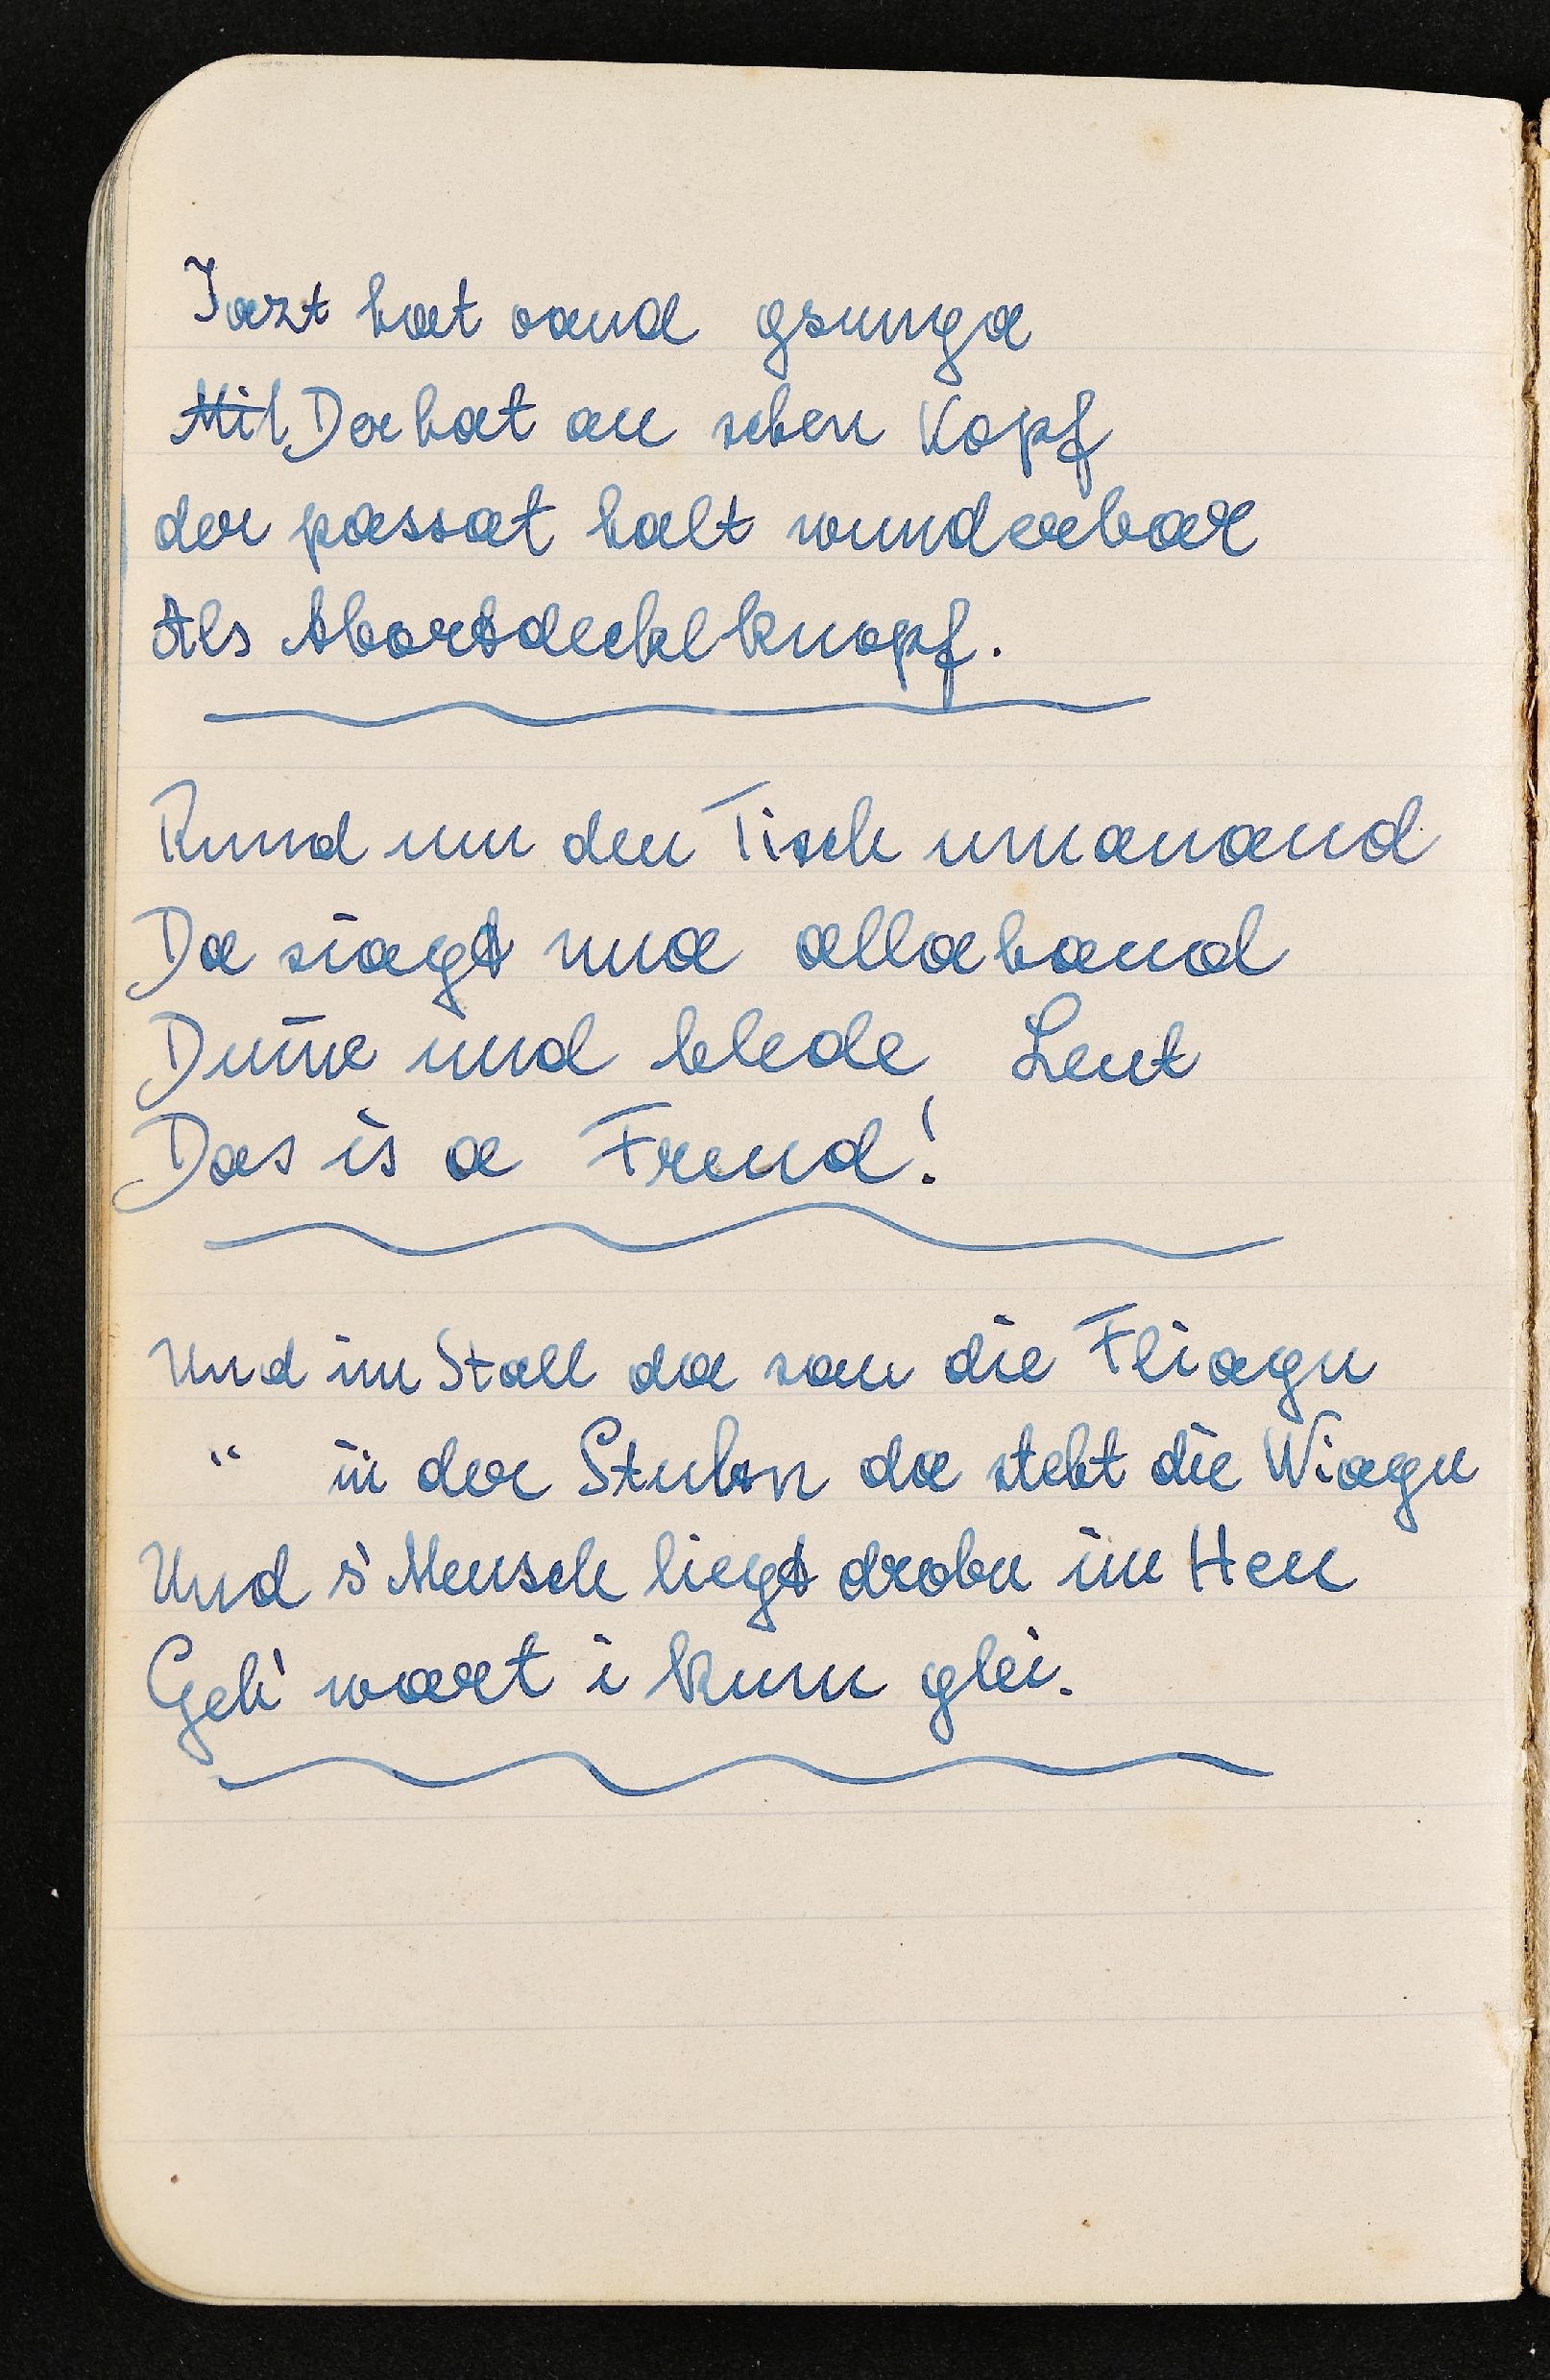 Iazt hat oana gsunga
~~Mit~~ Der hat an schen Kopf
der passat halt wunderbar
Als Abortdecklknopf.
Rund um den Tisch umanand
Da siagt ma allahand
Dum̄e und blede Leut
Das is a Freud!
Und im Stall da san die Fliagn
" in der Stubn da steht die Wiagn
Und s' Mensch liegt drobn im Heu
Geh' wart i kum glei.